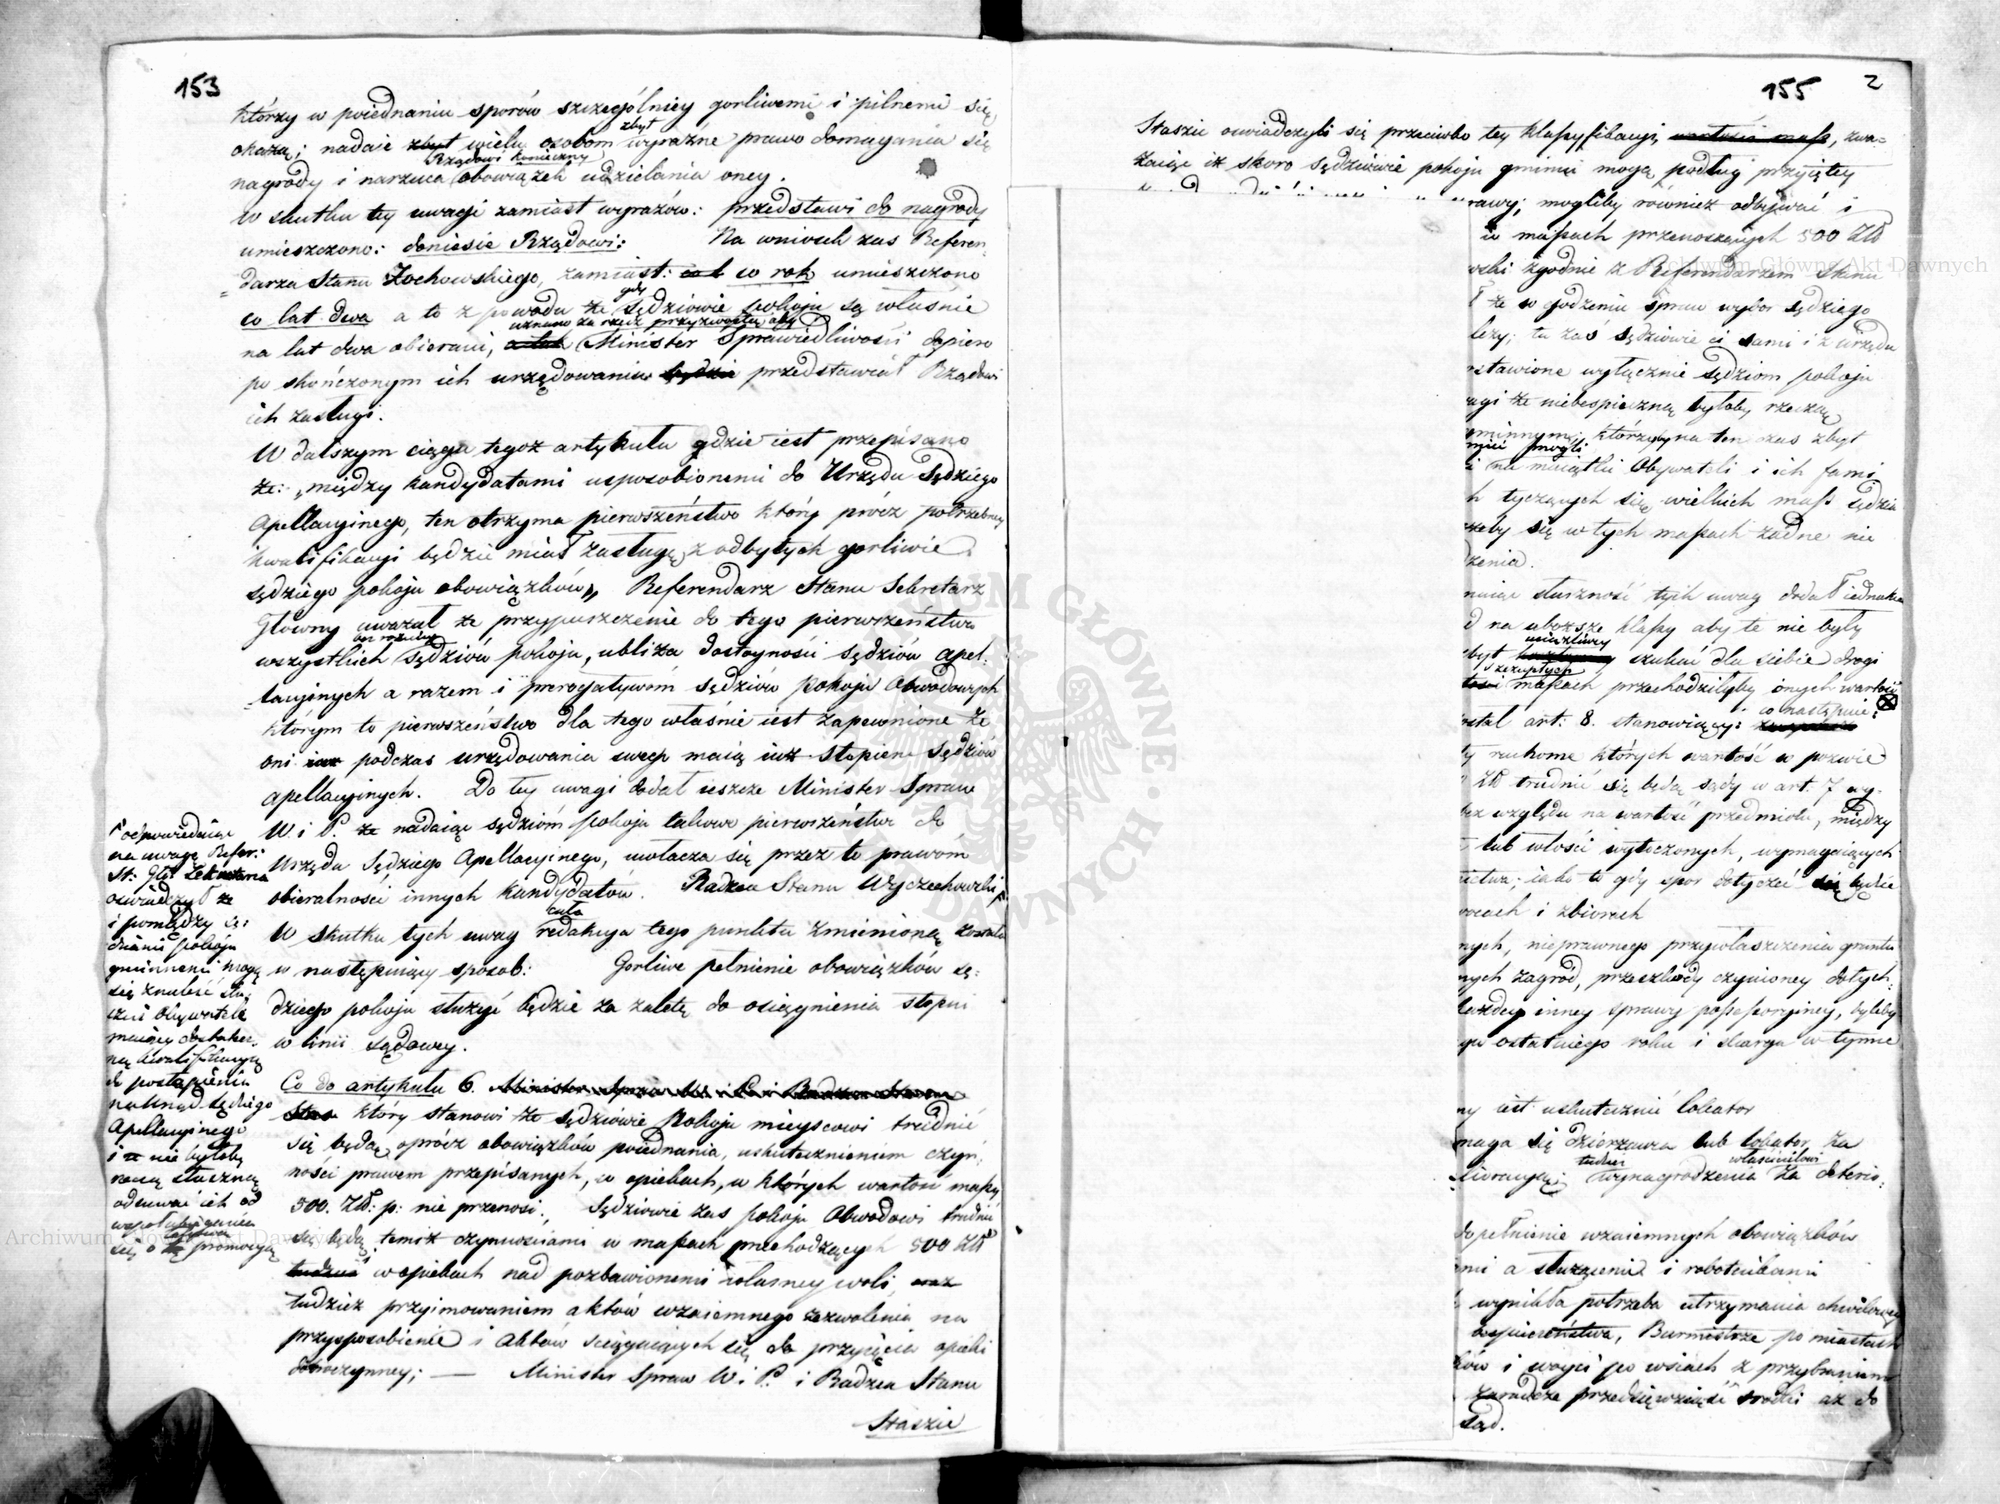 153
którzy w poiednaniu sporów szczególniey gorliwemi i pilnemi się
okażą; nadaie zbyt wielu osobom zbyt wyraźne prawo domagania się
nagrody i narzuca Rządowi konieczny obowiązek udzielania oney.
W skutku tey uwagi zamiast wyrazów: przedstawi do nagrody
umieszczono: doniesie Rządowi: Na wniosek zas Referen-
darza Stanu Żochowskiego, zamiast: co rok umieszczono
co lat dwa a to z powodu że gdy Sędziowie pokoju są właśnie
na lat dwa obierani, uznano za rzecz przyzwoitą aby Minister Sprawiedliwości dopiero
po skończonym ich urzędowaniu będzie przedstawiał Rządowi
ich zasługi.
W dalszym ciągu tegoż artykułu gdzie iest przepisano
że: „między kandydatami usposobionemi do Urzędu Sędziego
Apellacyinego, ten otrzyma pierwszeństwo który prócz potrzebney
kwalifikacyi będzie miał zasługę z odbytych gorliwie
sędziego pokoju obowiązków„ Referendarz Stanu Sekretarz
Główny uważał że przypuszczenie do tego pierwszeństwa
wszystkich bez różnicy Sędziów pokoju, ubliża dostoyności sędziów apel-
lacyinych a razem i prerogatywom sędziów Pokoju Obwodowych
którym to pierwszeństwo dla tego właśnie iest zapewnione że
oni iuż podczas urzędowania swego maią iuż stopień Sędziów
apellacyinych. Do tey uwagi dodał ieszcze Minister Spraw
W i P. że nadaiąc sędziom pokoju takowe pierwszeństwo do
Urzędu Sędziego Apellacyinego, uwłacza się przez to prawom
obieralności innych kandydatów. Radzca Stanu Wyczechowski
W skutku tych uwag cała redakcya tego punktu zmienioną została
w następuiący sposób: Gorliwe pełnienie obowiązków sę-
dziego pokoju służyć będzie za zaletę do osiągnienia stopni
w linii sądowey.
Co do artykułu 6. Minister Spraw W. i P. i Radzca Stanu
Stas który stanowi że sędziowie Pokoju mieyscowi trudnić
się będą oprócz obowiązków poiednania, uskutecznieniem czyn-
ności prawem przepisanych, w opiekach, w których wartość massy
500. Złł: p: nie przenosi., Sędziowie zas pokoju Obwodowi trudnić
się będą temiż czynnościami w massach przechodzących 500 Złł
tudzież w opiekach nad pozbawionemi własney woli, oraz
tudzież przyimowaniem aktów wzaiemnego zezwolenia na
przysposobienie i Aktów sciągaiących się do przyięcia opieki
dobroczynney; — Minister Spraw W. i P. i Radzca Stanu
Staszic
odpowiedaiąc
na uwagę Refer:
St: Gło: Sekretarza
oświadczył że
i pomiędzy sę-
dziami pokoju
gminnemi mogą
się znaleść
Obywatele
maiący dostatecz-
ną kwalifikacyą
do postąpienia
na Urząd Sędziego
Apellacyinego
i że nie byłoby
rzeczą słuszną
odsuwać ich od
współubiegania
się o promocyą
155 2
Staszic oswiadczyli się przeciwko tey klassyfikacyi, wartości mass, zwa-
żaiąc iż skoro sędziowie pokoju gminni mogą podług przyiętey
rawy; mogliby również odbywać i
w massach przenoszących 500 Złł
wski zgodnie z Referendarzem Stanu
ł że w godzeniu spraw wybor sędziego
leży; tu zaś sędziowie ci sami i z urzędu
stawione wyłącznie sędziom pokoju
agi że niebespieczną byłoby rzeczą
gminnym; którzyby na ten czas zbyt
mieć mogli
i na maiątki Obywateli i ich fami
h tyczących się wielkich mass sędzia
żeby się w tych massach żadne nie
dzenia.
naiąc słuszność tych uwag dodał iednakże
d na uboższe klassy aby te nie były
zbyt uciążliwey szukać dla siebie drogi
szczupłych massach przechodziłyby onych wartość
ostał art: 8. stanowiący: co następuie:
ty ruchome których wartość w pozwie
Złł trudnić się będą sądy w art. 7 wy-
bez względu na wartość przedmiotu, między
lub włości wytoczonych, wymagaiących
nictwa; iako to gdy spor dotyczeć się będzie
wocach i zbiorach
nych, nieprawnego przywłaszczenia gruntu
nych zagród, przeszkody czynioney dotych-
każdey inney sprawy possessoryiney, byleby
gu ostatniego roku i skarga w tymże
ny iest uskutecznić lokator
maga się dzierzawca lub lokator, za
tudzież wynagrodzenia właścicielowi za deterio-
dopełnienie wzaiemnych obowiązków
ami a służącemi i robotnikami
wynikła potrzeba utrzymania chwilowey
bespieczeństwa, Burmistrze po miastach
ków i woyci po wsiach z przybraniem
zaradcze przedsięwziąść srodki aż do
sąd.
Archiwum Główne Akt Dawnych
Archiwum Główne Akt Dawnych
ARCHIWUM GŁÓWNE AKT DAWNYCH